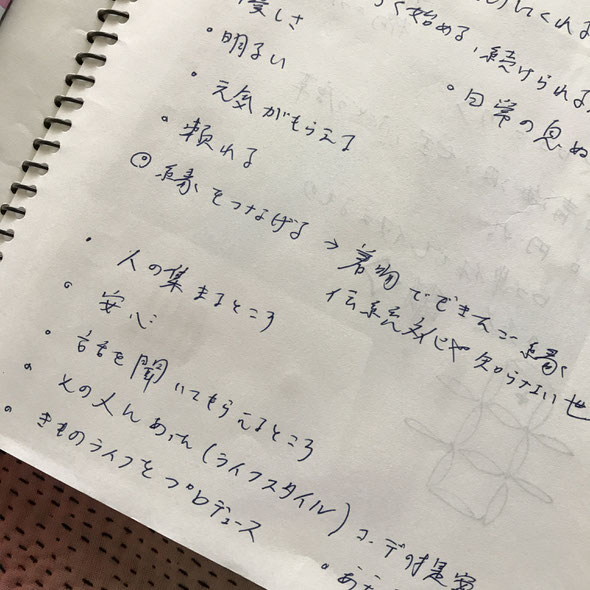 優しさ
く始める、続けられる
・明るい
・日常の息ぬ
・元気がもらえる
・頼れる
◎縁をつなげる → 着物でできたご縁
伝統文化や知らない世
・人の集まるところ
・安心
・話を聞いてもらえるところ
・その人にあった(ライフスタイル)コーデの提案
・きものライフをプロデュース